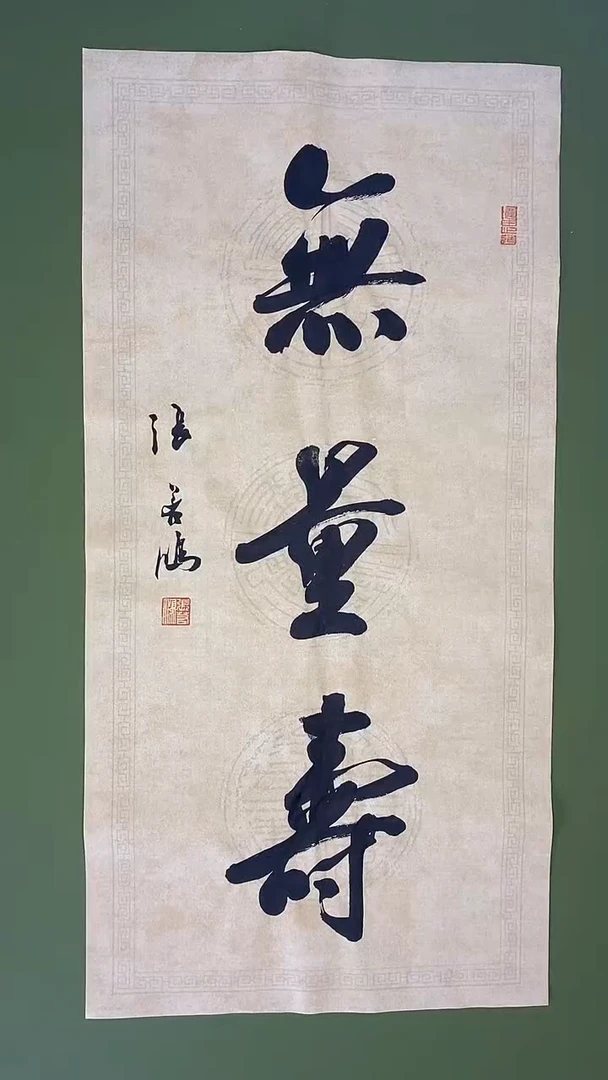 無量壽
張若鴻